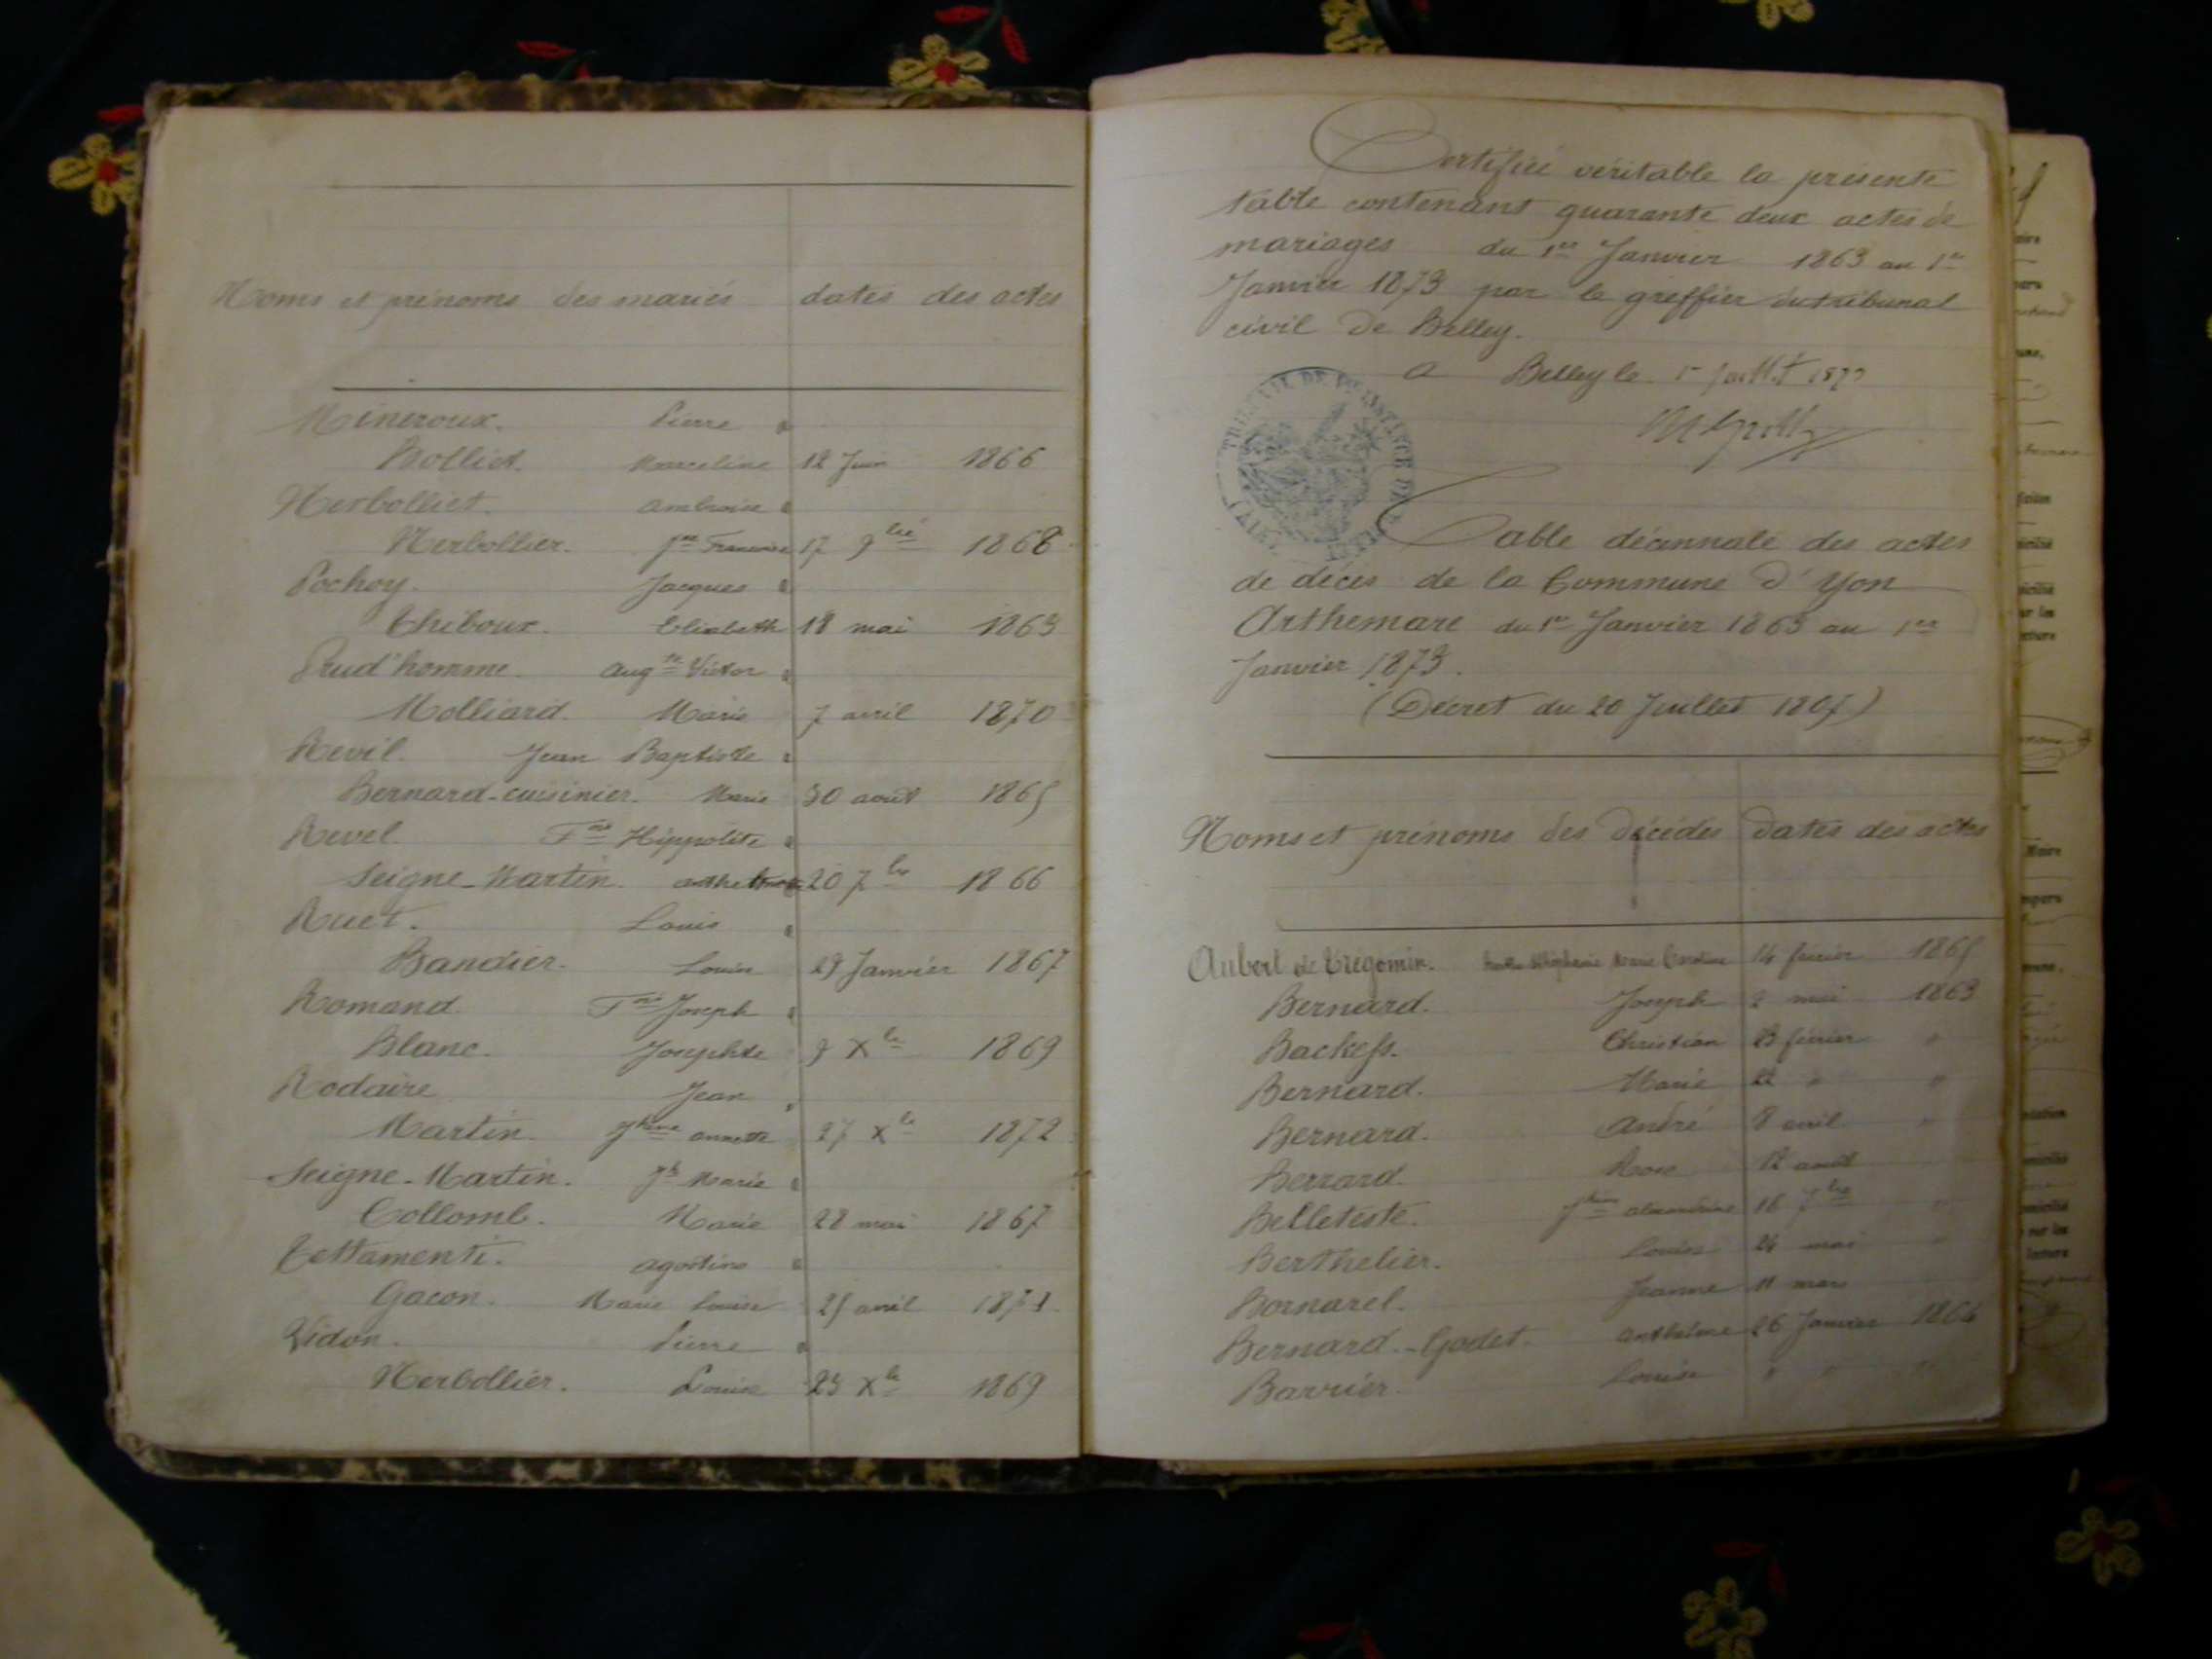 Noms et prénoms des mariés dates des actes
Mineroux. Pierre
Bolliet. Marceline 12 Juin 1866
Herbolliet. Ambroise
Herbollier. Jne Françoise 17 9bre 1868
Pochoy. Jacques
Thiboux. Elisabeth 18 mai 1863
Prud'homme. Augte Victor
Molliard. Marie 7 avril 1870
Revil. Jean Baptiste
Bernard-cuisinier. Marie 30 août 1865
Revel Fois Hippolite
Seigne-Martin. 20 7bre 1866
Ruet. Louis
Bandier. Louise 29 Janvier 1867
Romand. Fois Joseph
Blanc. Josephte 9 Xbre 1869
Rodaire Jean
Martin. annette 27 Xbre 1872
Seigne-Martin. Jh Marie
Collomb. Marie 28 mai 1867
Tettamenti. agostino
Gacon. Marie Louise 25 avril 1871
Vidon. Pierre
Herbollier. Louise 23 Xbre 1869
Certifiée véritable la présente
table contenant quarante deux actes de
mariages du 1er Janvier 1863 au 1er
Janvier 1873 par le greffier du tribunal
civil de Belley.
a Belley le 1er juillet 1873
TRIBUNAL DE 1re INSTANCE DE
Table décennale des actes
de décès de la Commune d'Yon
Arthemare du 1er Janvier 1863 au 1er
Janvier 1873.
(Décret du 20 Juillet 1807)
Noms et prénoms des décédés dates des actes
Aubert de Trégomin. Marie Caroline 14 février 1865
Bernard. Joseph 2 mai 1863
Backess. Christian 23 février "
Bernard. Marie 22 " "
Bernard. André 8 avril "
Berrard. Rose 12 août
Belleteste. alexandrine 16 7bre "
Berthelier. Louise 24 mai "
Bornarel. Jeanne 11 mars
Bernard-Godet. anthelme 26 Janvier 1864
Barrier. Louise " " "